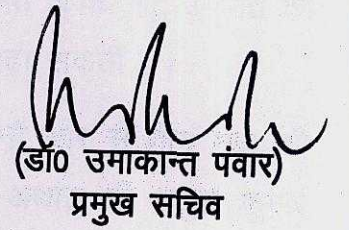 (डॉ0 उमाकान्त पंवार)
प्रमुख सचिव